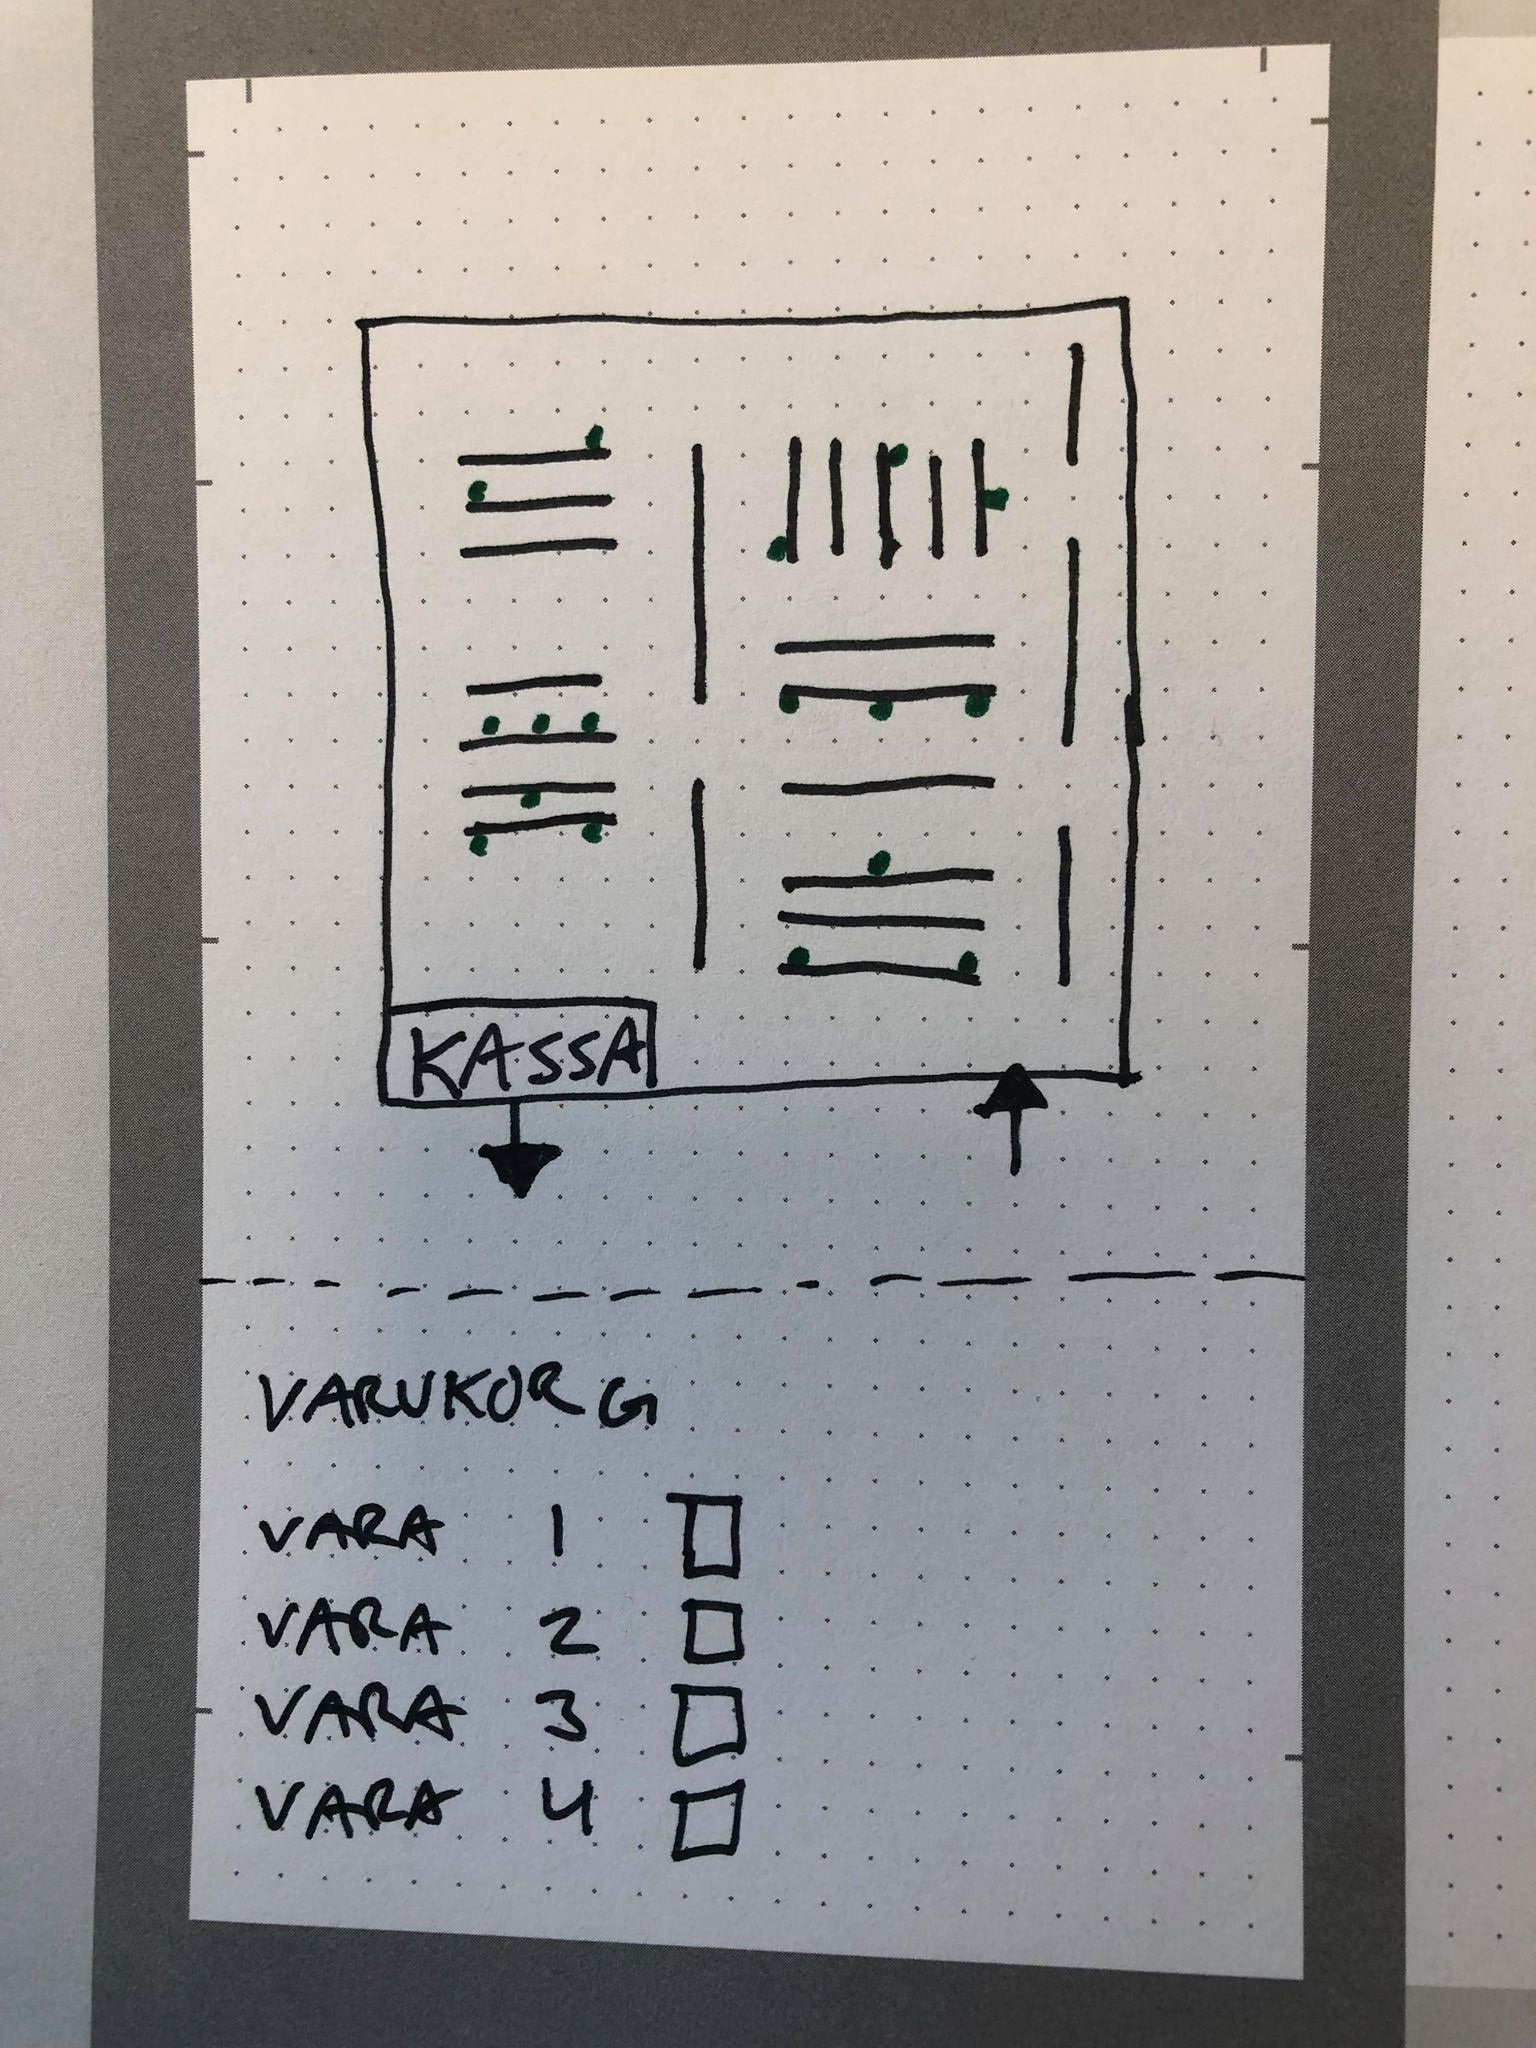 KASSA
VARUKORG
VARA 1
VARA 2
VARA 3
VARA 4